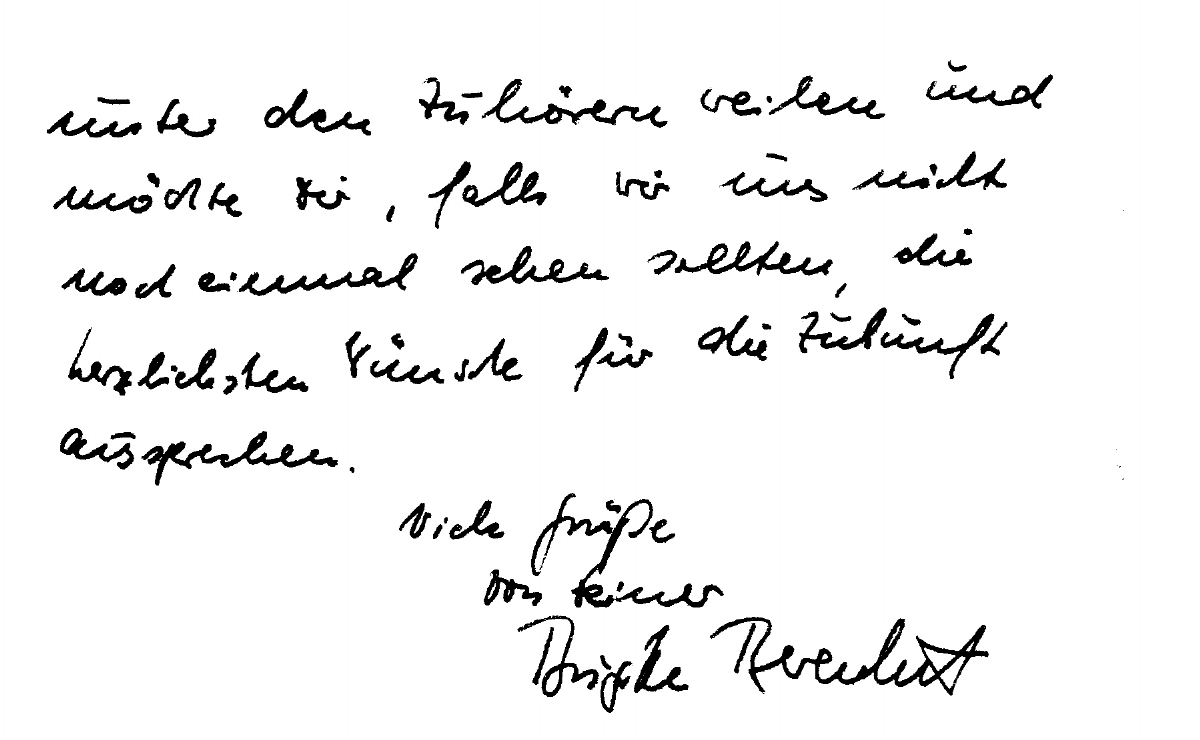 unter den Zuhörern weilen und
möchte Dir, falls wir uns nicht
noch einmal sehen sollten, die
herzlichsten Wünsche für die Zukunft
aussprechen.
Viele Grüße
von Deiner
Brigitte